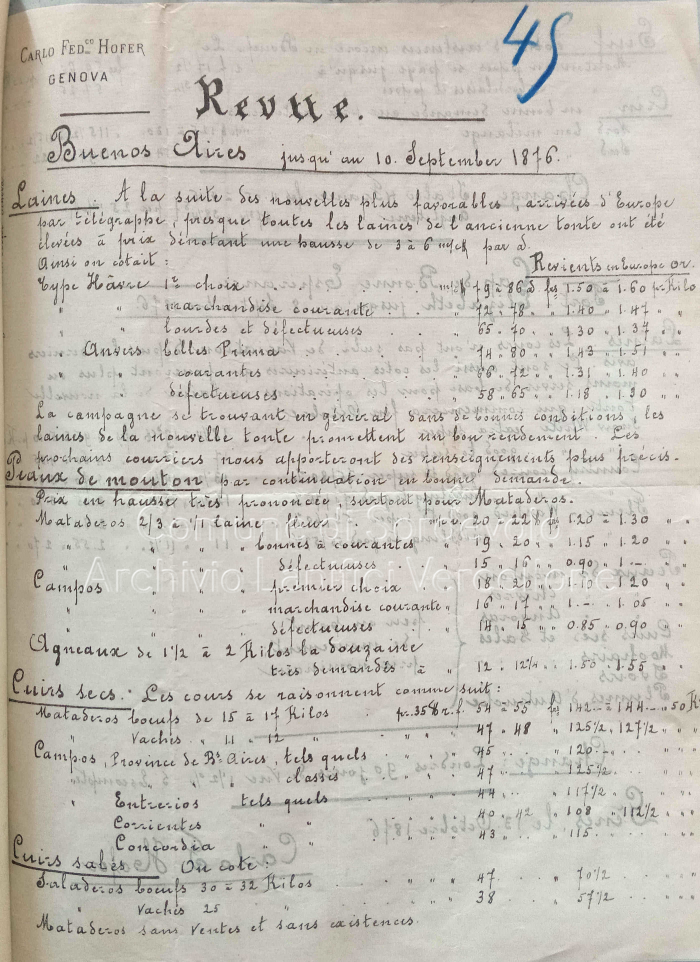 45
CARLO FED.co HOFER
GENOVA
Revue.
Buenos Aires jusqu'au 10. September 1876.
Laines. A la suite des nouvelles plus favorables, arrivées d'Europe
par télégraphe, presque toutes les laines de l'ancienne tonte ont été
élevées à prix dénotant une hausse de 3 à 6 m/c par @.
Ainsi on cotait: Revients en Europe or.
Type Hâvre 1re choix m/c 79 à 86 @ fcs 1.50 à 1.60 pr Kilo
" " marchandise courante " 72 " 78 " " 1.40 " 1.47 " "
" " lourdes et défectueuses " 65 " 70 " " 1.30 " 1.37 " "
" Anvers belles Prima " 74 " 80 " " 1.43 " 1.51 " "
" " courantes " 66 " 72 " " 1.31 " 1.40 " "
" " défectueuses " 58 " 65 " " 1.18 " 1.30 " "
La campagne se trouvant en général dans de bonnes conditions, les
laines de la nouvelle tonte promettent un bon rendement. Les
prochains courriers nous apporteront des renseignements plus précis.
Peaux de mouton par continuation en bonne demande.
Prix en hausse très prononcée, surtout pour Mataderos.
Mataderos 2/3 à 1/1 laine fleur 20 à 22 1.20 à 1.30 " "
" " " bonnes à courantes 19 " 20 " " 1.15 " 1.20 " "
" " " défectueuses 15 " 16 " " 0.90 " 1.- " "
Campos " " premier choix " 18 " 20 " " 1.10 " 1.20 " "
" " " marchandise courante " 16 " 17 " " 1.- " 1.05 " "
" " " défectueuses " 14 " 15 " " 0.85 " 0.90 " "
Agneaux de 1 1/2 à 2 Kilos la douzaine
très demandés à " 12 " 12 1/4 " " 1.50 " 1.55 " "
Cuirs secs. Les cours se raisonnent comme suit:
Mataderos boeufs de 15 à 17 Kilos pr. 35 54 à 55 142 à 144 50 K
" Vaches " 11 " 12 " " " 47 " 48 " 125 1/2 " 127 1/2 " "
Campos, Province de Bs Aires, tels quels " " 45 " 120 " "
" " " classés " " 47 " 125 1/2 " "
" Entrerios tels quels " " 44 " 117 1/2 " "
Corrientes " " " " 40 " 42 " 108 " 112 1/2 " "
Concordia " " " " 43 " 115 " "
Cuirs salés. On cote
Saladeros boeufs 30 à 32 Kilos " " 47 " 70 1/2 " "
" Vaches 25 " " " 38 " 57 1/2 " "
Mataderos sans ventes et sans existences.